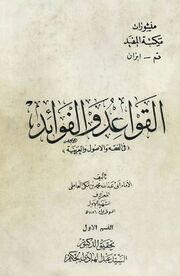 منشورات
مكتبة المفيد
قم - ايران
القواعد والفوائد
(في الفقه والاصول والعربية)
تأليف
الامام ابي عبدالله محمد بن مكي العاملي
المعروف
بالشهيد الاول
القسم الاول
تحقيق الدكتور
السيد عبد الهادي الحكيم